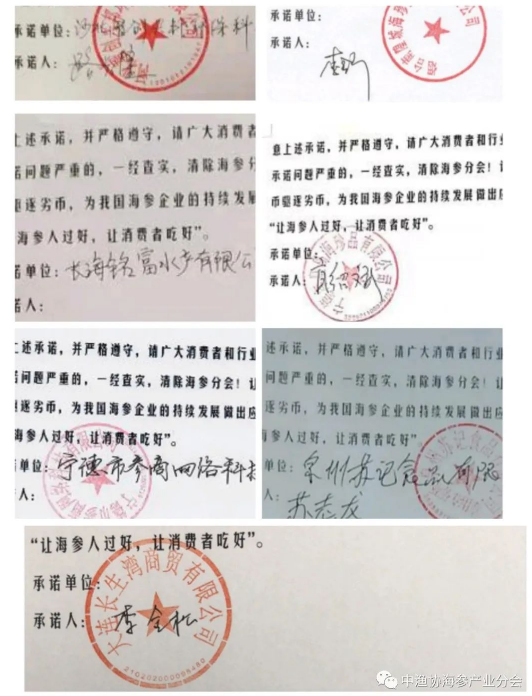 承诺单位:
承诺人:
承诺人:
上述承诺，并严格遵守，请广大消费者
承诺问题严重的，一经查实，清除海参分
驱逐劣币，为我国海参企业的持续发展
海参人过好，让消费者吃好”。
诺单位: 长海铭富水产有限公
诺人:
意上述承诺，并严格遵守，请广大消费者和行业
承诺问题严重的，一经查实，清除海参分会！让
币驱逐劣币，为我国海参企业的持续发展做出应
“让海参人过好，让消费者吃好”。
承诺单位:
承诺人:
上述承诺，并严格遵守，请广大消费者和行业
诺问题严重的，一经查实，清除海参分会！让
驱逐劣币，为我国海参企业的持续发展做出应
海参人过好，让消费者吃好”。
单位: 宁德市参商网络科技
人:
述承诺，并严格遵守，请广大消费者和行业
问题严重的，一经查实，清除海参分会！让
逐劣币，为我国海参企业的持续发展做出应
海参人过好，让消费者吃好”。
单位: 泉州苏记食品有限
人: 苏志龙
“让海参人过好，让消费者吃好”。
承诺单位:
承诺人: 李全松
大连长生湾商贸有限公司
中渔协海参产业分会